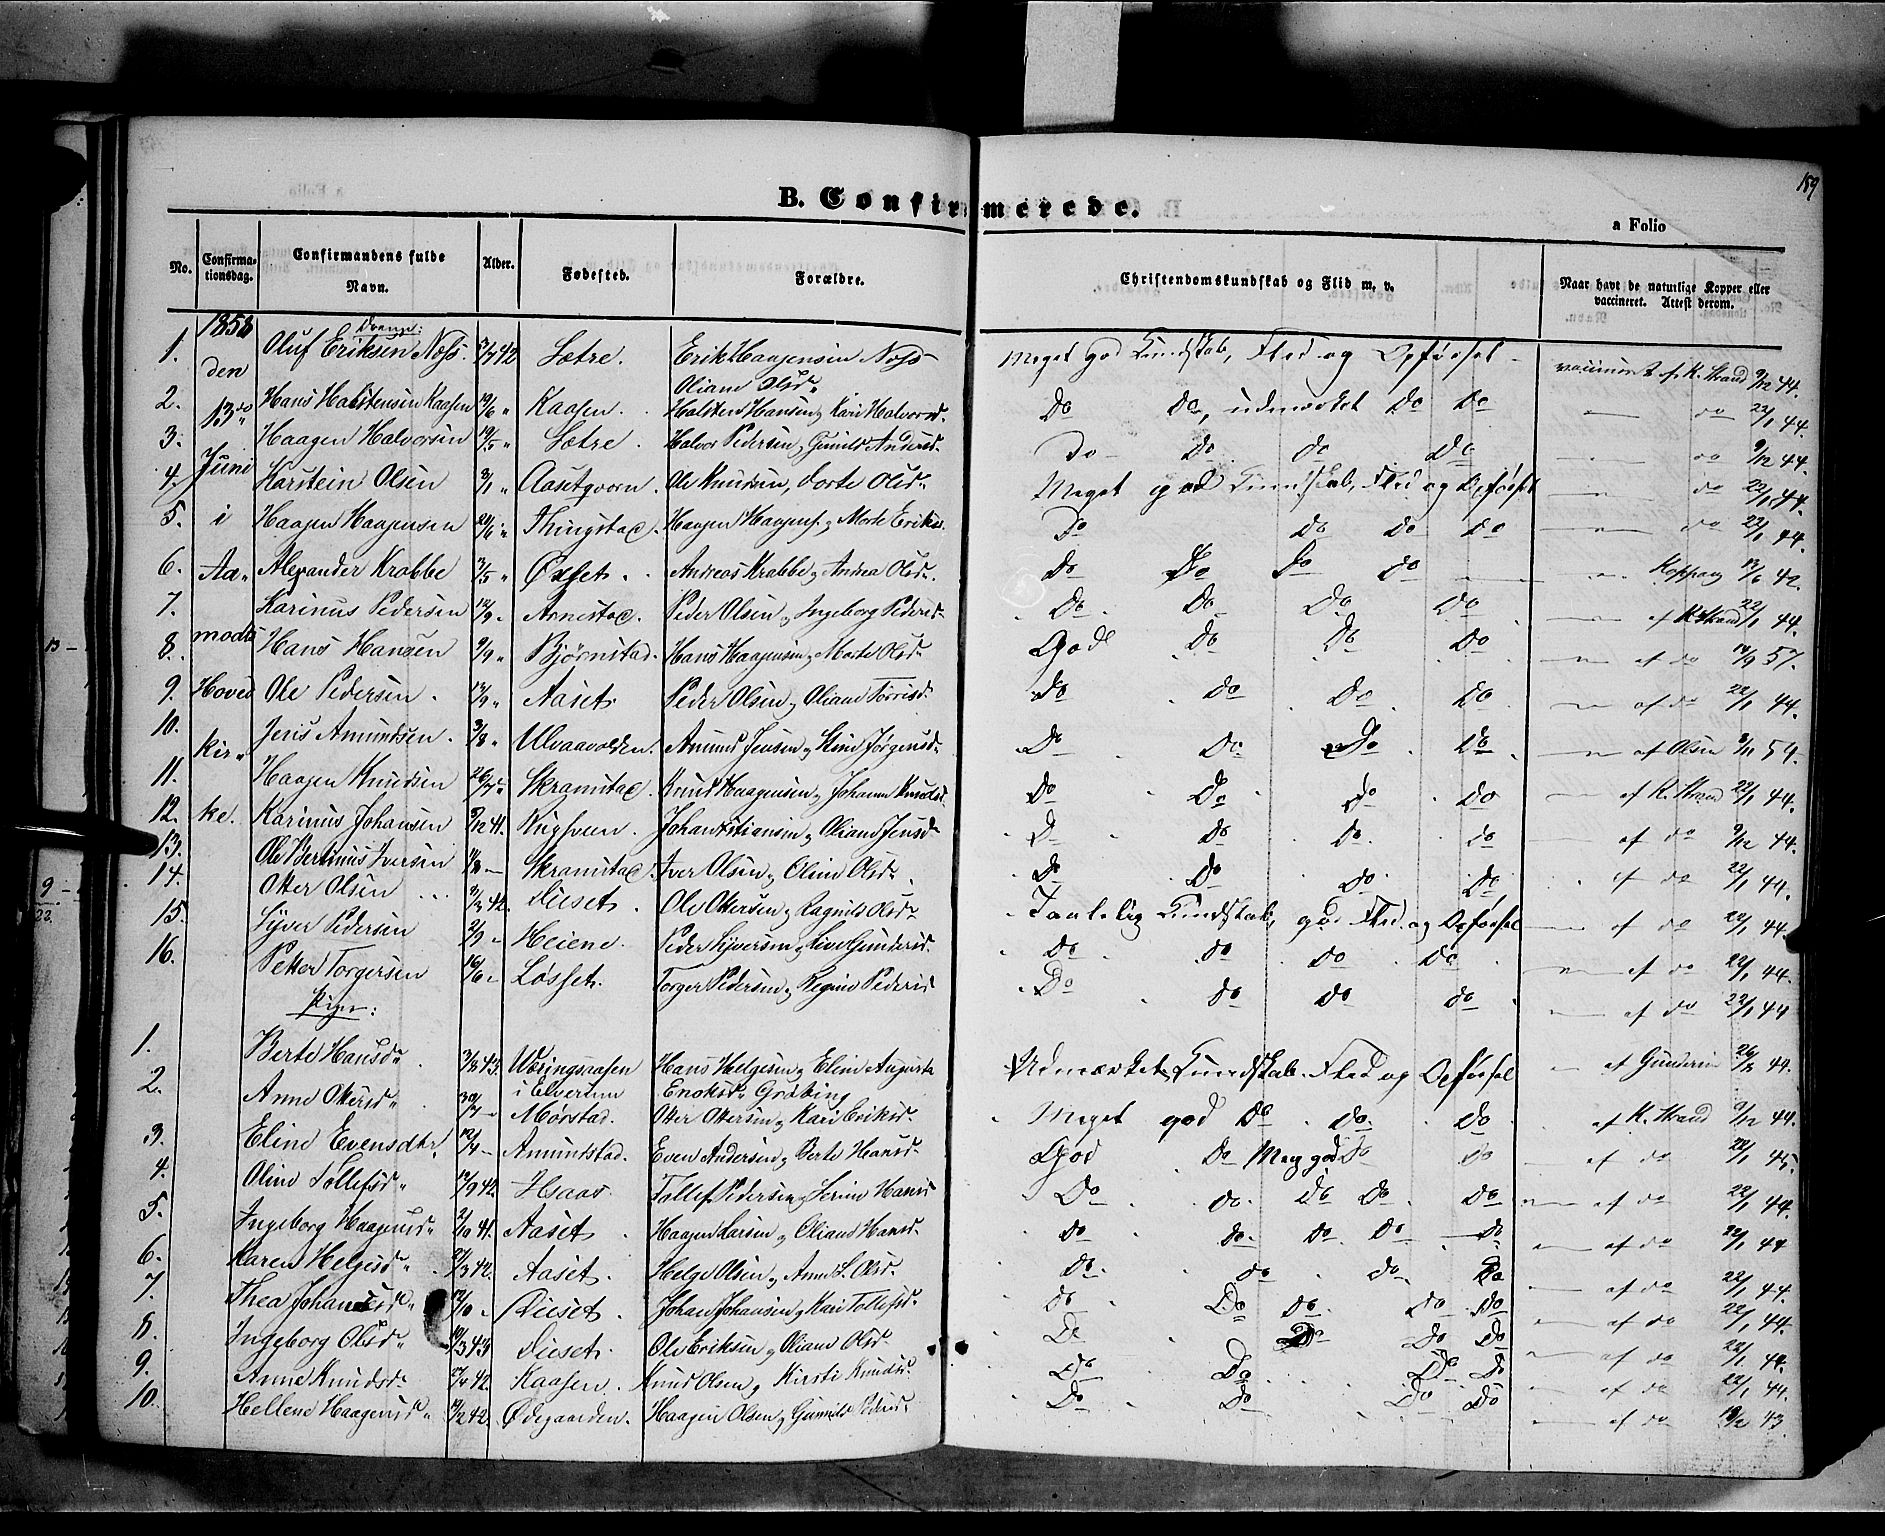 159
B. Confirmerede.
a Folio
No. Confirmationsdag. Confirmandens fulde Navn. Alder. Fødested. Forældre. Christendomskundskab og Flid m. v. Naar havt de naturlige Kopper eller vaccineret. Attest derom.
1858 Drenge:
1. den Oluf Eriksen Næss 42 Sætre. Erik Haagensen Næss Oliane Olsdr Meget god Kundskab, Flid og Opførsel vaccineret af K. Strand 9/12 44.
2. 13de Hans Halstensen Kaasen 19/6 " Kaasen. Halsten Hansen, Kari Halvorsd. Do Do, udmærket Do Do do 22/1 44.
3. Haagen Halvorsen 19/5 " Sætre. Halvor Pedersen, Gunild Andersd. Do Do do Do do 9/12 44.
4. Juni Karstein Olsen 3/1 " Aasetgvorn. Ole Knudsen, Dorte Olsdr Meget god Kundskab, Flid og Opførsel do 22/1 44.
5. i Haagen Haagensen 20/6 " Thingstad. Haagen Haagens., Marte Eriksd. Do Do Do Do do 22/1 44.
6. Aa- Alexander Krabbe 3/5 " Øxset. Andreas Krabbe, Andrea Olsd. Do Do Do Do Koppang 13/6 42
7. Karinus Pedersen 12/9 " Arnestad. Peder Olsen, Ingeborg Pedersd. Do Do Do Do af K. Strand 22/1 44.
8. modts Hans Hansen 9/9 " Bjørnstad. Hans Haagensen, Marte Olsdr God Do Do Do af do 14/9 57.
9. Hoved Ole Pedersen. 13/9 " Aaset. Peder Olsen, Oliane Torrisd. Do Do Do Do af do 22/1 44.
10. Jens Amundsen. 3/8 " Ulvaavolden. Amund Jensen, Stine Jørgensd. Do Do Do Do af Olsen 8/11 54.
11. kir- Haagen Knudsen 26/7 " Skramstad. Knud Haagensen, Johanne Knudsd. Do Do Do Do af K. Strand 22/1 44.
12. ke. Karinus Johansen 9/12 41. Rugsveen. Johan Kristiansen, Oliane Jensd. D Do Do do af do 9/12 44.
13. Ole Bertinus Iversen Skramstad. Iver Olsen, Oline Olsdr Do Do Do Do af do 22/1 44.
14. Otter Olsen 42. Dieset. Ole Ottersen, Ragnild Olsdr Taalelig Kundskab, god Flid og Opførsel af do 22/1 44.
15. Syver Pedersen 2/9 " Heiene. Peder Syversen, Live Gundersd. Do do Do Do af do 22/1 44.
16. Petter Torgersen 16/6 " Løsset. Torger Pedersen, Regine Pedersd Do Do Do Do af do 22/1 44
Piger:
1. Berte Hansdr 3/8 43. Væringsaasen i Elverum Hans Helgesen, Eline Augusta Enoksdr Grøting Udmærket Kundskab, Flid og Opførsel af Gundersen 26/8 44.
2. Anne Ottersdr 30/7 Mørstad. Otter Ottersen, Kari Eriksd. Meget god Do Do Do af K. Strand 9/12 44.
3. Eline Evensdtr 12/4 Amundstad. Even Andersen, Berte Hansd. God Do Meg god Do Do af do 22/1 45.
4. Oline Tollefsd 13/9 42. Hsaas Tollef Pedersen, Serine Hansd Do do Do Do Do af do 22/1 44.
5. Ingeborg Haagensd 41. Aaset. Haagen Larsen, Oliane Hansd. Do Do Do Do Do af do 22/1 44
6. Karen Helgesd 21/3 42. Aaset. Helge Olsen, Anne S. Olsd. Do Do Do Do af do 22/1 44.
7. Thea Johansd 12/10 Dieset. Johan Johansen, Kari Tollefsd. Do Do Do Do Do af do 22/1 44.
8. Ingeborg Olsd 10/3 43 Dieset. Ole Eriksen, Oliane Olsd. Do Do Do Do af do 22/1 44.
9. Anne Knudsd. 17/4 42. Kaasen. Knud Olsen, Kirsti Knudsd. Do Do Do Do af do 22/1 44.
10. Hellene Haagensd 19/2 42. Ødegaarden. Haagen Olsen, Gunild Pedersd. Do Do Do Do af do 19/2 43.